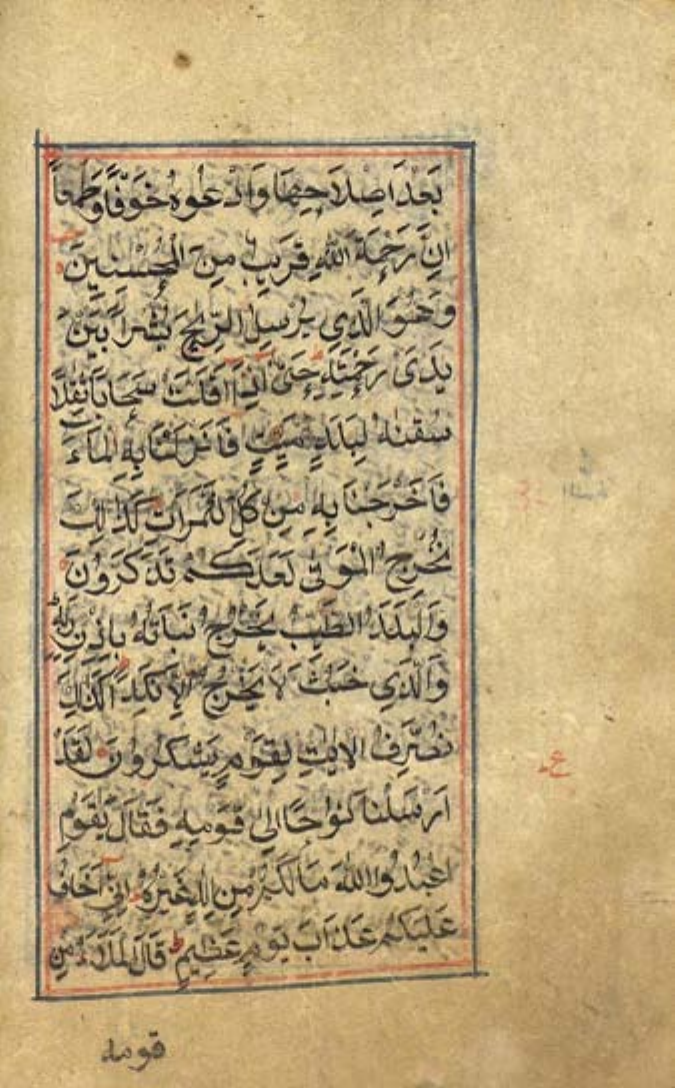 بَعْدَ اِصْلَاحِهَا وَادْعُوْهُ خَوْفًا وَّطَمَعًا
اِنَّ رَحْمَةَ اللّٰهِ قَرِيْبٌ مِنَ الْمُحْسِنِيْنَ
وَهُوَ الَّذِى يُرْسِلُ الرِّيٰحَ بُشْرًا بَيْنَ
يَدَىْ رَحْمَتِهٖ حَتّٰى اِذَا اَقَلَّتْ سَحَابًا ثِقَالًا
سُقْنٰهُ لِبَلَدٍ مَّيِّتٍ فَاَنْزَلْنَا بِهِ الْمَاءَ
فَاَخْرَجْنَا بِهٖ مِنْ كُلِّ الثَّمَرَاتِ كَذٰلِكَ
نُخْرِجُ الْمَوْتٰى لَعَلَّكُمْ تَذَكَّرُوْنَ
وَالْبَلَدُ الطَّيِّبُ يَخْرُجُ نَبَاتُهٗ بِاِذْنِ رَبِّهٖ
وَالَّذِى خَبُثَ لَا يَخْرُجُ اِلَّا نَكِدًا كَذٰلِكَ
نُصَرِّفُ الْاٰيٰتِ لِقَوْمٍ يَشْكُرُوْنَ لَقَدْ
اَرْسَلْنَا نُوْحًا اِلٰى قَوْمِهٖ فَقَالَ يٰقَوْمِ
اعْبُدُوا اللّٰهَ مَا لَكُمْ مِنْ اِلٰهٍ غَيْرُهٗ اِنِّىْ اَخَافُ
عَلَيْكُمْ عَذَابَ يَوْمٍ عَظِيْمٍ قَالَ الْمَلَاُ مِنْ
قومه